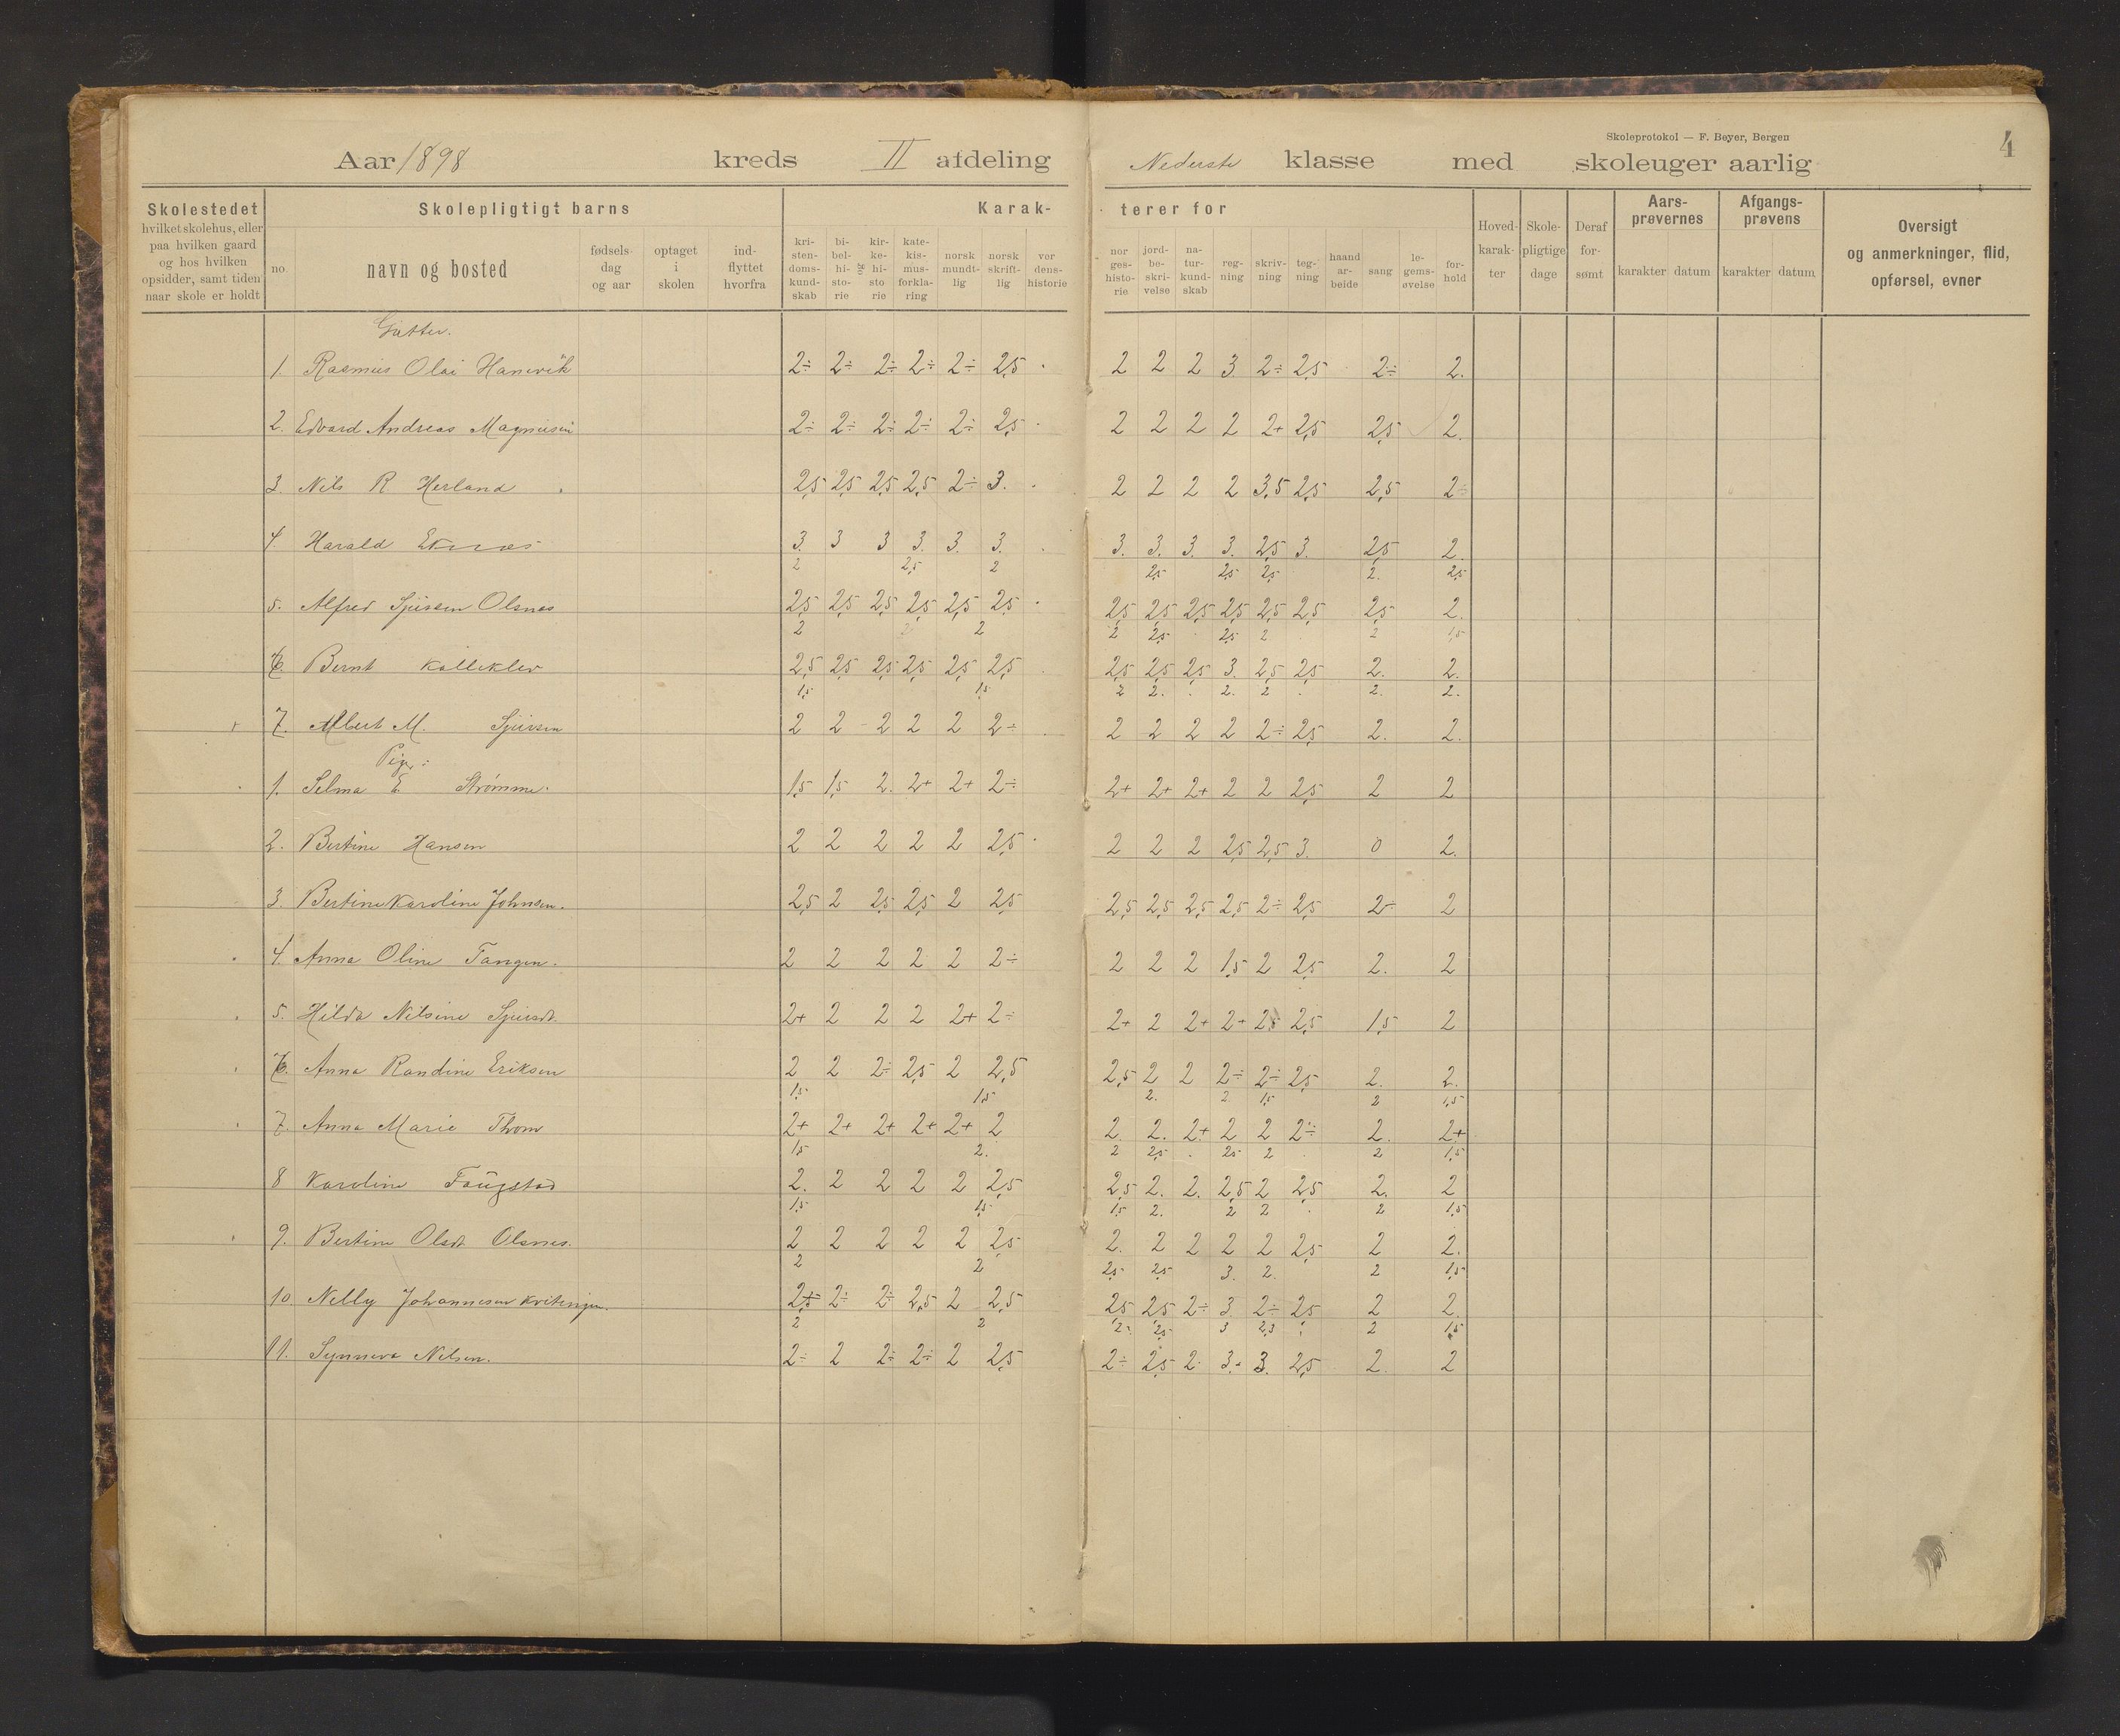 Skoleprotokol — F. Beyer, Bergen
4
Aar 1898 kreds II afdeling Nederste klasse med skoleuger aarlig
Skolestedet
hvilket skolehus, eller
paa hvilken gaard
og hos hvilken
opsidder, samt tiden
naar skole er holdt
Skolepligtigt barns
no.
navn og bosted
fødsels-
dag
og aar
optaget
i
skolen
ind-
flyttet
hvorfra
Karak-
terer for
kri-
sten-
doms-
kund-
skab
bi-
bel-
hi-
sto-
rie
og
kir-
ke-
hi-
sto
rie
kate-
kis-
mus-
forkla-
ring
norsk
mundt-
lig
norsk
skrift-
lig
ver
dens-
historie
nor
ges-
histo-
rie
jord-
be-
skri-
velse
na-
tur-
kund-
skab
reg-
ning
skriv-
ning
teg-
ning
haand
ar-
beide
sang
le-
gems-
øvelse
for-
hold
Hoved-
karak-
ter
Skole-
pligtige
dage
Deraf
for-
sømt
Aars-
prøvernes
karakter datum
Afgangs-
prøvens
karakter datum
Oversigt
og anmerkninger, flid,
opførsel, evner
Gutter.
1. Rasmus Olai Hanevik 2÷ 2÷ 2÷ 2÷ 2÷ 2,5 2 2 2 3 2÷ 2,5 2÷ 2.
2. Edvard Andreas Magnusen 2÷ 2÷ 2÷ 2÷ 2÷ 2,5 2 2 2 2 2+ 2,5 2,5 2.
3. Nils R Herland 2,5 2,5 2,5 2,5 2÷ 3. 2 2 2 2 3,5 2,5 2,5 2÷
4. Harald Eknes 3. 3 3 3. 3. 3. 3. 3. 3. 3. 2,5 3. 2,5 2.
2 2,5 2 2,5 2,5 2,5 2. 2,5
5. Alfred Sjursen Olsnes 2,5 2,5 2,5 2,5 2,5 2,5 2,5 2,5 2,5 2,5 2,5 2,5 2,5 2.
2 2 2 2,5 2,5 2 2 1,5
6. Bernt Kalleklev 2,5 2,5 2,5 2,5 2,5 2,5 2,5 2,5 2,5 3. 2,5 2,5 2. 2.
1,5 1,5 2 2. 2. 2 2. 2.
7. Albert M. Sjursen 2 2 2 2 2 2÷ 2 2 2 2 2÷ 2,5 2. 2.
Piger:
1. Selma E. Strømme. 1,5 1,5 2. 2+ 2+ 2÷ 2+ 2+ 2+ 2 2 2,5 2 2
2. Bertine Hansen 2 2 2 2 2 2,5 2 2 2 2,5 2,5 3. 0 2.
3. Bertine Karoline Johnsen. 2,5 2 2,5 2,5 2 2,5 2,5 2,5 2,5 2,5 2÷ 2,5 2÷ 2
4. Anna Oline Tangen. 2 2 2 2 2 2÷ 2 2 2 1,5 2 2,5 2. 2
5. Hilda Nilsine Sjursdt. 2+ 2 2 2 2+ 2÷ 2+ 2 2+ 2+ 2,5 2,5 1,5 2
6. Anna Randine Eriksen 2 2 2÷ 2,5 2 2,5 2,5 2 2 2÷ 2÷ 2,5 2. 2.
1,5 1,5 2. 2 1,5 2 1,5
7. Anna Marie Thom 2+ 2+ 2+ 2+ 2+ 2 2. 2. 2+ 2 2 2÷ 2. 2+
1,5 2. 2 2,5 2,5 2 2 1,5
8 Karoline Faugstad 2. 2 2 2 2 2,5 2,5 2. 2. 2,5 2 2,5 2. 2
1,5 1,5 1,5 2. 2 2 2 1,5
9. Bertine Olsdt. Olsnes. 2 2 2 2 2 2,5 2. 2 2 2 2 2,5 2 2.
2 2 2,5 2,5 3. 2. 2 1,5
10. Nelly Johannesen Kvitingen. 2÷ 2÷ 2,5 2 2,5 2,5 2,5 2÷ 3 2÷ 2,5 2 2.
2 2 2 2,5 3 2,3 2 1,5
11. Synneva Nilsen. 2÷ 2 2÷ 2÷ 2 2,5 2÷ 2,5 2 3. 3. 2,5 2. 2